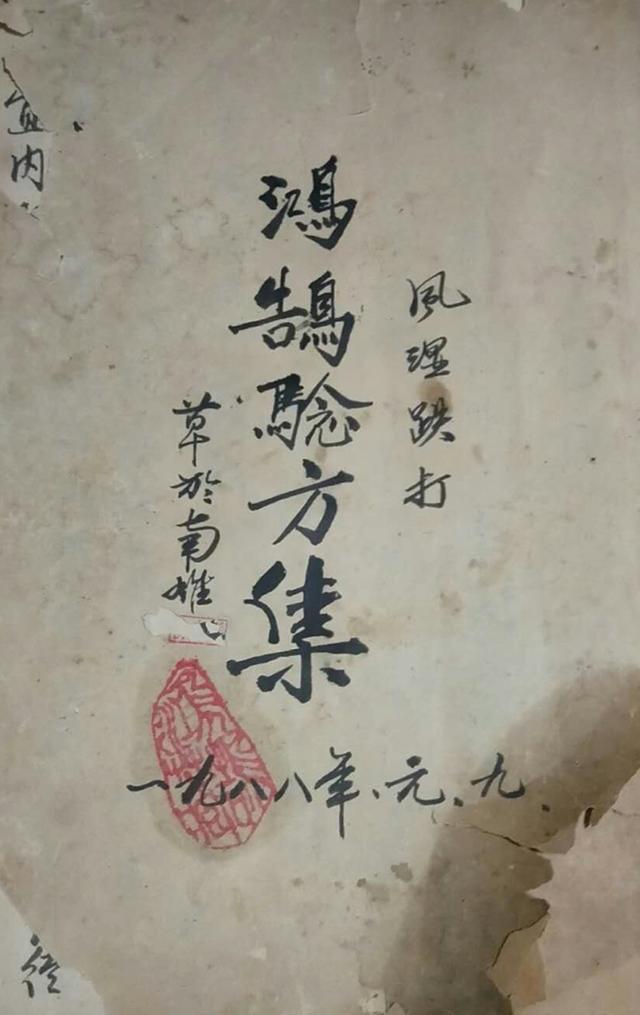 風湿跌打
鴻鵠騐方集
草於南雄
一九八八年、元、九、
内